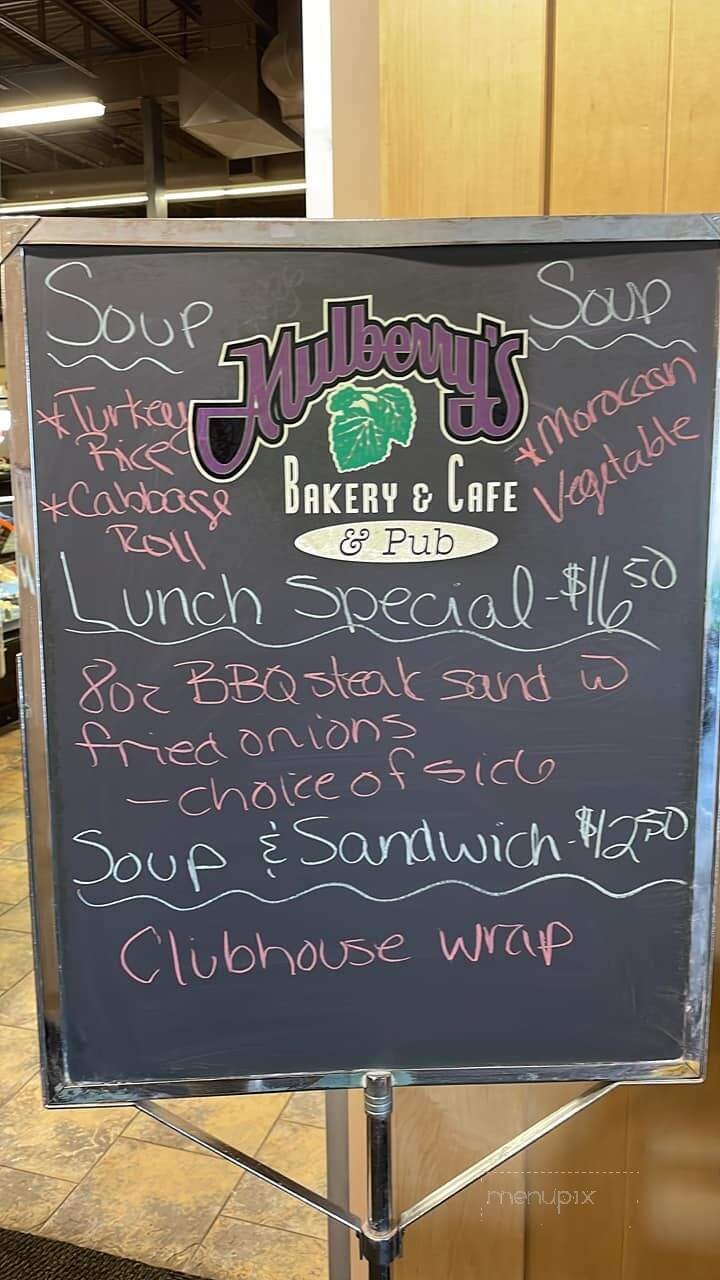 Soup
*Turkey
Rice
*Cabbage
Roll
Mulberry's
BAKERY & CAFE
& Pub
Soup
*Moroccan
Vegetable
Lunch Special - $16.50
8oz BBQ steak sand w
fried onions
- choice of side
Soup & Sandwich - $12.50
Clubhouse wrap
menupix